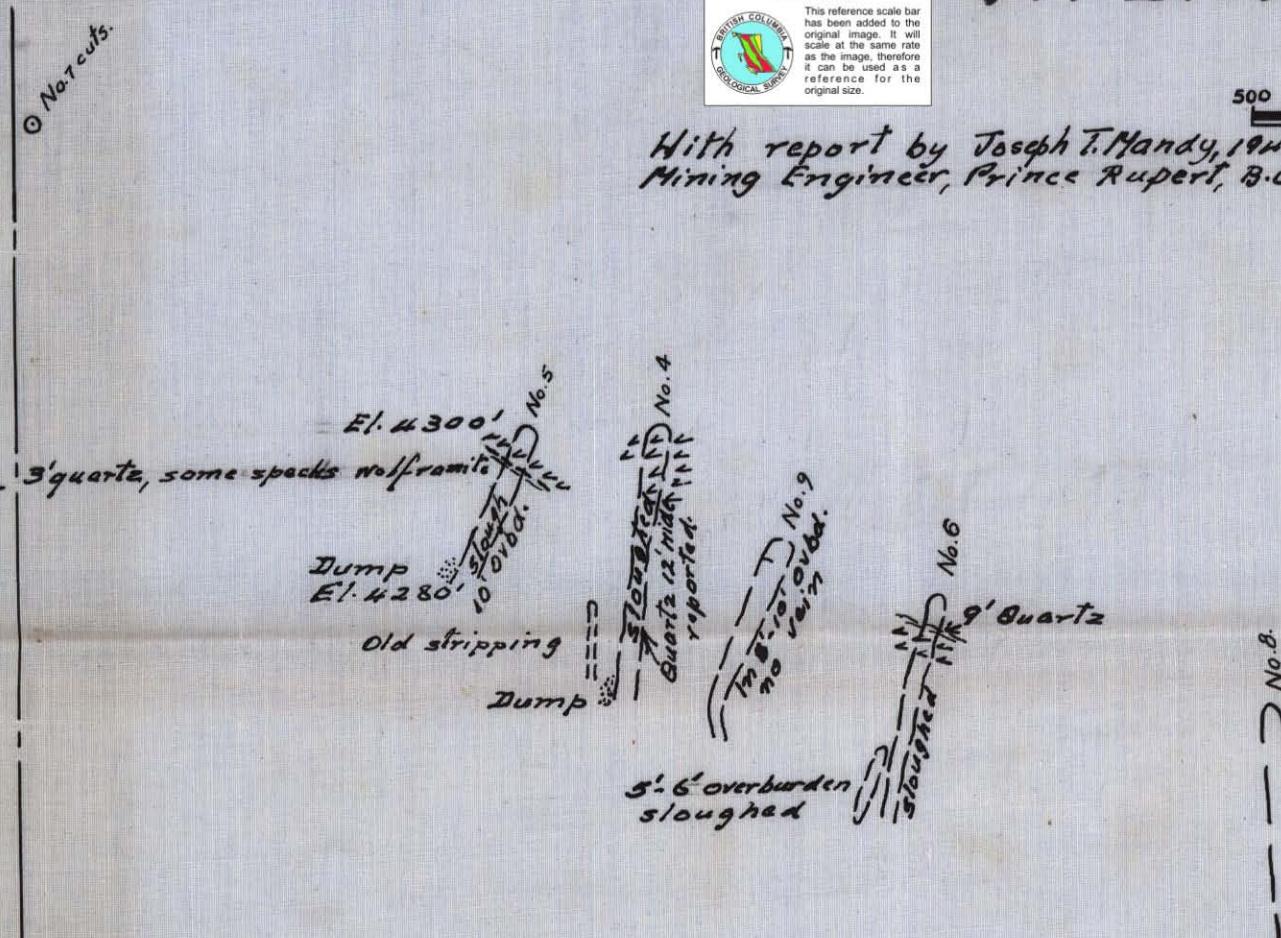 BRITISH COLUMBIA
GEOLOGICAL SURVEY
This reference scale bar
has been added to the
original image. It will
scale at the same rate
as the image, therefore
it can be used as a
reference for the
original size.
No. 7 cuts.
500
With report by Joseph T. Mandy, 194
Mining Engineer, Prince Rupert, B.C
No. 5
El. 4300'
3' quartz, some specks wolframite
slough
10' Ovbd.
Dump
El. 4280'
Old stripping
Dump
No. 4
sloughed
Quartz 12' wide
reported.
No. 9
In 8'-10' Ovbd.
no vein
No. 6
9' Quartz
sloughed
5'-6' overburden
sloughed
No. 8.